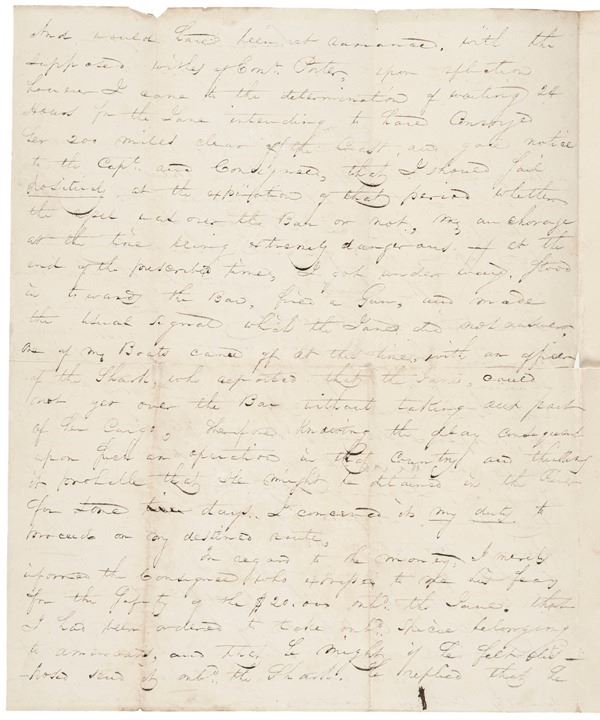 And would have been at variance, with the
supposed wishes of Com. Porter, upon reflection
however I came to the determination of waiting 24
Hours for the Jane intending to have Convoyed
her 200 miles clear of the Coast, and gave notice
to the Capt. and Consignee, that I should sail
positively at the expiration of that period whether
the vessel was over the Bar or not, my anchorage
at the time being extremely dangerous. — at the
end of the prescribed time, I got under way, Stood
in towards the Bar, fired a Gun, and made
the usual signal which the Jane did not answer,
one of my Boats came off at this time, with an officer
of the Shark, who reported that the Jane, could
not get over the Bar without taking out part
of her Cargo, therefore Knowing the delay consequent
upon such an operation in that Country and thinking
it probable that she might be detained in the River
for some days. I conceived it my duty to
proceed on my destined route,
In regard to the money, I merely
informed the Consignee who expressed to me his fears
for the safety of the $20.000 onbd. the Jane. that
I had been ordered to take onbd. Specie belonging
to americans, and that he might if he felt dis-
posed send it onbd. the Shark. he replied that he